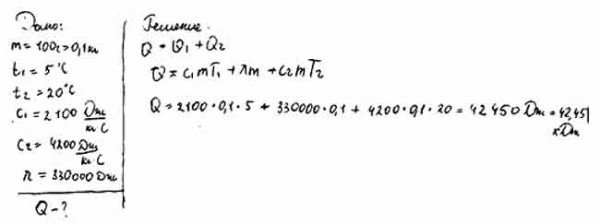 Дано:
m = 100г = 0,1 кг
t₁ = 5 °C
t₂ = 20°C
c₁ = 2100 Дж/кг C
c₂ = 4200 Дж/кг C
λ = 330000 Дж
Q - ?
Решение
Q = Q₁ + Q₂
Q = c₁mT₁ + λm + c₂mT₂
Q = 2100·0,1·5 + 330000·0,1 + 4200·0,1·20 = 42450 Дж = 42,45
кДж